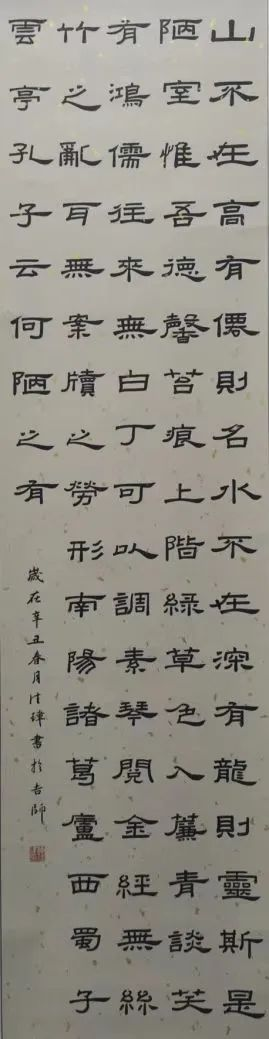 山不在高有僊則名水不在深有龍則靈斯是
陋室惟吾德馨苔痕上階綠草色入簾青談笑
有鴻儒往來無白丁可以調素琴閱金經無絲
竹之亂耳無案牘之勞形南陽諸葛廬西蜀子
雲亭孔子云何陋之有
歲在辛丑春月瑋書於吉師